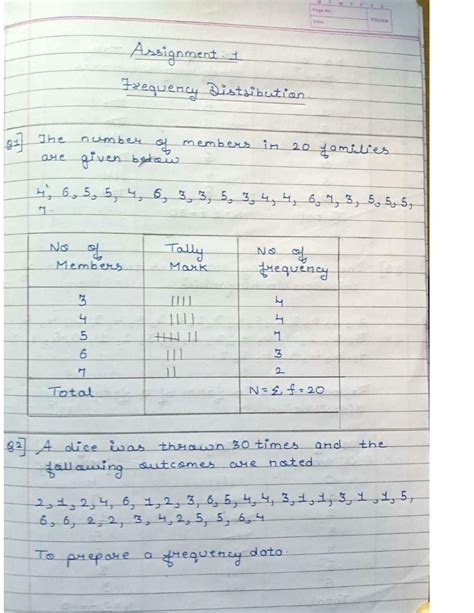 Page No.
Date
Assignment : 1
Frequency Distribution
Q1] The number of members in 20 families
are given below
4, 6, 5, 5, 4, 6, 3, 3, 5, 3, 4, 4, 6, 7, 3, 5, 5, 5,
7.
No of Members Tally Mark No of frequency
3 |||| 4
4 |||| 4
5 |||| || 7
6 ||| 3
7 || 2
Total N = Σ f = 20
Q2] A dice was thrown 30 times and the
following outcomes are noted
2, 1, 2, 4, 6, 1, 2, 3, 6, 5, 4, 4, 3, 1, 1, 3, 1, 1, 5,
6, 6, 2, 2, 3, 4, 2, 5, 5, 6, 4
To prepare a frequency data.